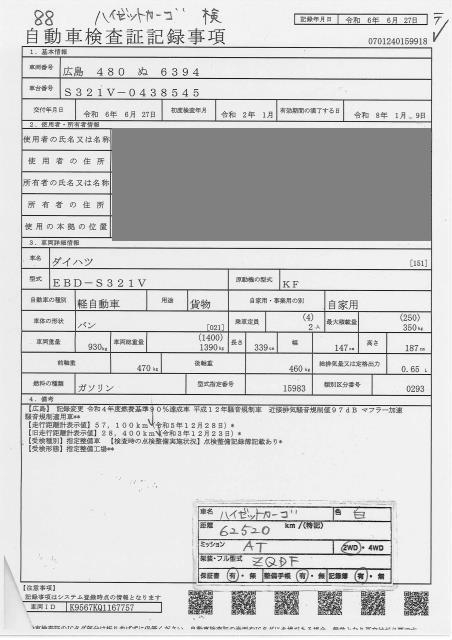 88 ハイゼットカーゴ 検
記録年月日 令和 6年 6月 27日
自動車検査証記録事項
0701240159918
1. 基本情報
車両番号 広島 480 ぬ 6394
車台番号 S321V-0438545
交付年月日 令和 6年 6月 27日 初度検査年月 令和 2年 1月 有効期間の満了する日 令和 8年 1月 9日
2. 使用者・所有者情報
使用者の氏名又は名称
使用者の住所
所有者の氏名又は名称
所有者の住所
使用の本拠の位置
3. 車両詳細情報
車名 ダイハツ [151]
型式 EBD-S321V 原動機の型式 KF
自動車の種別 軽自動車 用途 貨物 自家用・事業用の別 自家用
車体の形状 バン [021] 乗車定員 (4) 2人 最大積載量 (250) 350kg
車両重量 930kg 車両総重量 (1400) 1390kg 長さ 339cm 幅 147cm 高さ 187cm
前軸重 470kg 後軸重 460kg 総排気量又は定格出力 0.65 L
燃料の種類 ガソリン 型式指定番号 15983 類別区分番号 0293
4. 備考
【広島】 記録変更 令和4年度燃費基準90%達成車 平成12年騒音規制車 近接排気騒音規制値97dB マフラー加速
騒音規制適用車**
【走行距離計表示値】57,100km(令和5年12月28日)*
【旧走行距離計表示値】28,400km(令和3年12月23日)*
【受検種別】指定整備車 【検査時の点検整備実施状況】点検整備記録簿記載あり*
【受検形態】指定整備工場**
車名 ハイゼットカーゴ 色 白
距離 62520 km/(特記)
ミッション AT 2WD・4WD
架装・フル型式 ZQDF
保証書 有・無 整備手帳 有・無 記録簿 有・無
【注意事項】
記録事項はシステム登録時点の情報となります
車両ID K9567KQ1167757